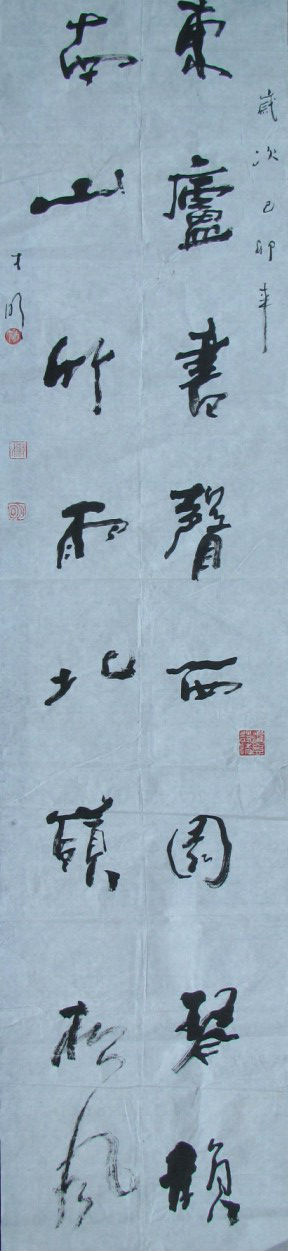 歲次己卯年
東廬書聲西園琴韻
南山竹雨北嶺松風